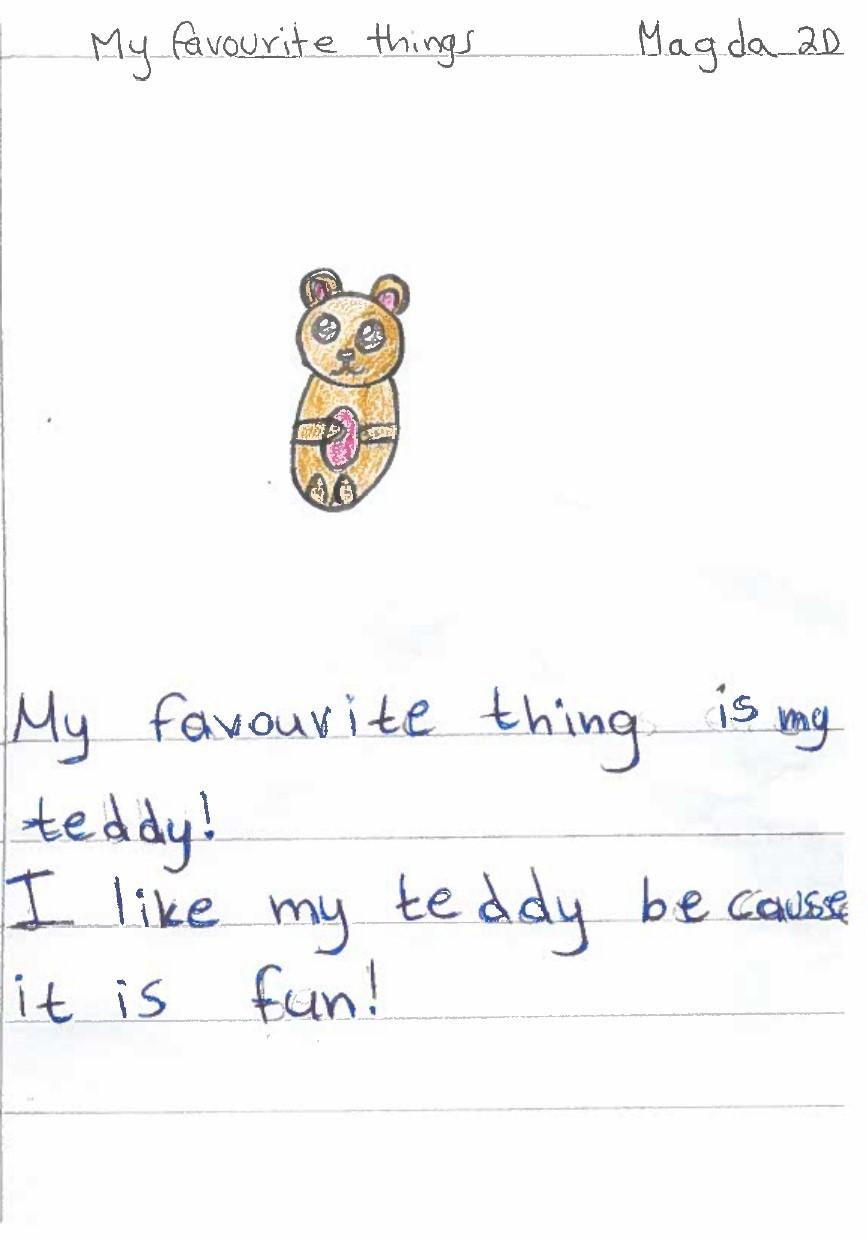 My favourite things Magda 2D
My favourite thing is my
teddy!
I like my teddy because
it is fun!